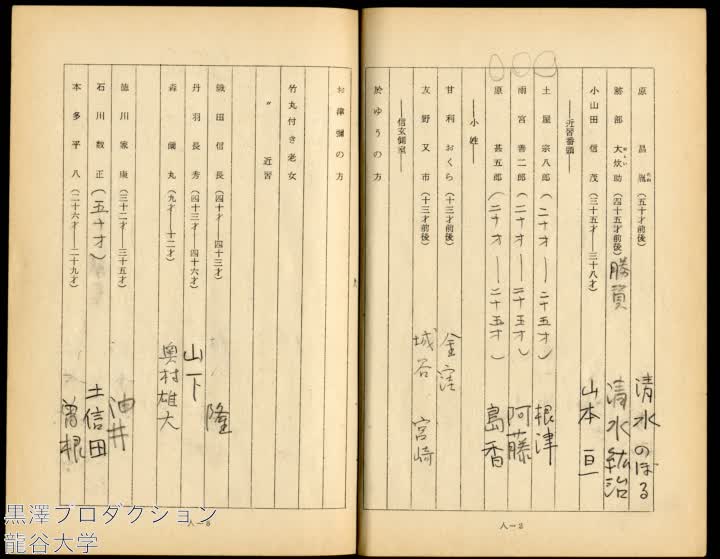 原　昌胤（五十才前後）　清水のぼる
跡部　大炊助（四十五才前後）勝資　清水紘治
小山田　信茂（三十五才――三十八才）　山本亘
――近習番頭――
土屋　宗八郎（二十才――二十五才）　根津
雨宮　善二郎（二十才――二十五才）　阿藤
原　甚五郎（二十才――二十五才）　島香
――小姓――
甘利　おくら（十三才前後）　金窪
友野　又市（十三才前後）　城谷　宮崎
――信玄側室――
於ゆうの方
八－2
お津彌の方
竹丸付き老女
〃　近習
織田　信長（四十才――四十三才）　隆
丹羽　長秀（四十三才――四十六才）　山下
森　蘭丸（九才――十二才）　奥村雄大
徳川　家康（三十二才――三十五才）　油井
石川　数正（五十才）　土信田
本多　平八（二十六才――二十九才）　曽根
黒澤プロダクション
龍谷大学